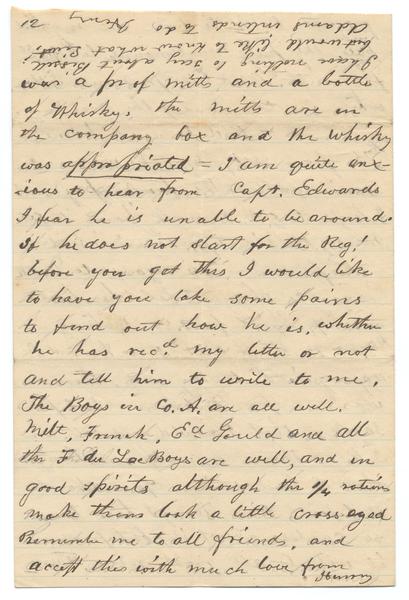 12
I have nothing to say about Bissell;
but would like to know what Lieut.
Adams intends to do Henry
was a pr of mitts and a bottle
of Whisky. the mitts are in
the company box and the whisky
was appropriated = I am quite anx-
-ious to hear from Capt. Edwards
I fear he is unable to be around.
If he does not start for the Reg!
before you get this I would like
to have you take some pains
to find out how he is, whether
he has recd. my letter or not
and tell him to write to me,
The Boys in Co. A. are all well.
Milt, French, Ed Gould and all
the F du Lac Boys are well, and in
good spirits although the 3/4 rations
make them look a little cross-eyed
Remember me to all friends, and
accept this with much love from
Henry